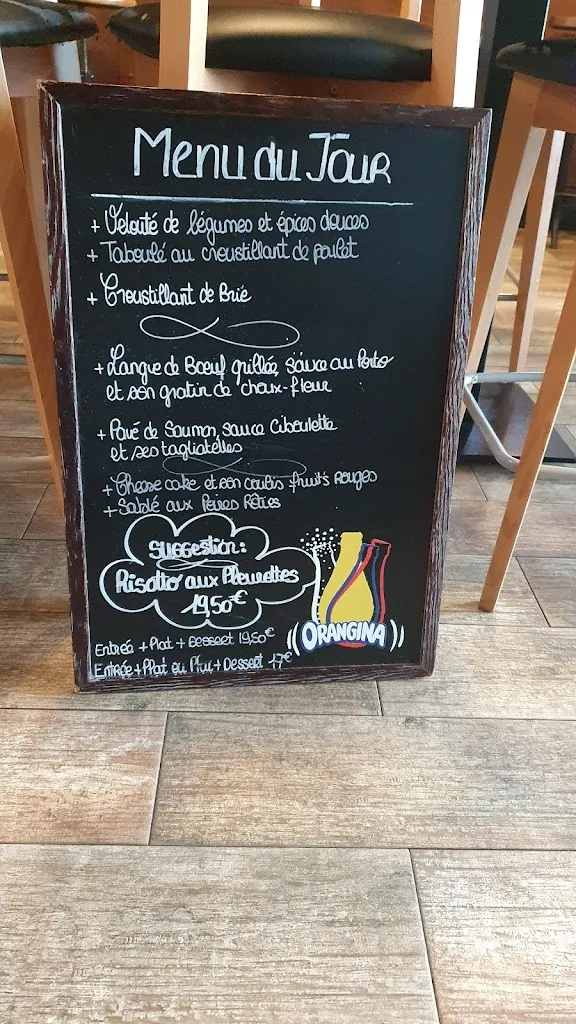 Menu du Jour
+ Velouté de légumes et épices douces
+ Taboulé au croustillant de poulet
+ Croustillant de Brie
+ Langue de Boeuf grillée, sauce au Porto
et son gratin de choux-fleur
+ Pavé de Saumon, sauce Ciboulette
et ses tagliatelles
+ Cheese cake et son coulis fruits rouges
+ Sablé aux Poires Rôties
Suggestion:
Risotto aux Pleurottes
19,50€
ORANGINA
Entrée + Plat + Dessert 19,50€
Entrée + Plat ou Plat + Dessert 17€